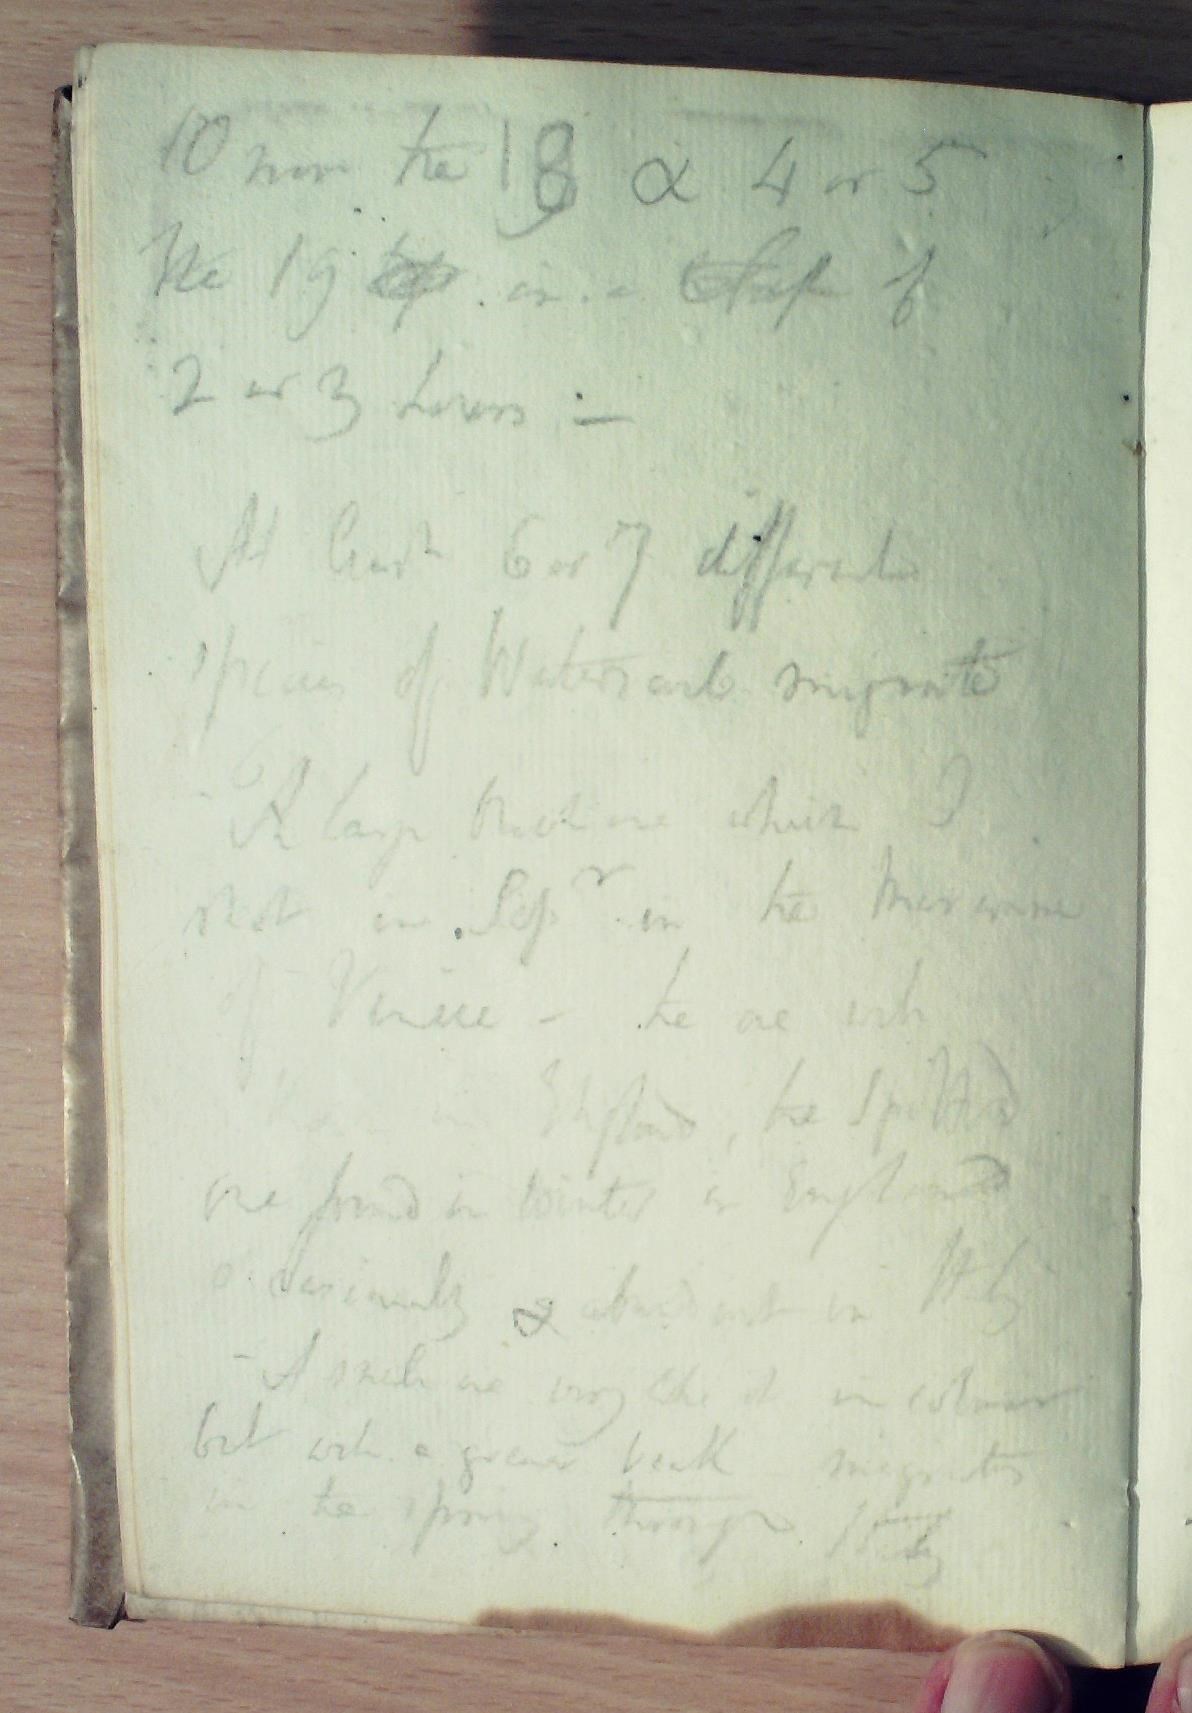 10 more the 18 & 4 or 5
the 19 in a of
2 or 3 hours –
At least 6 or 7 different
species of Waterrail migrate
- A large one which I
shot in Sepr in the
of Venice – the one
in England, the Spotted
are found in winter in England
occasionally & abundant in Italy
- A small one very like it in colour
but with a green beak migrates
in the spring through Italy